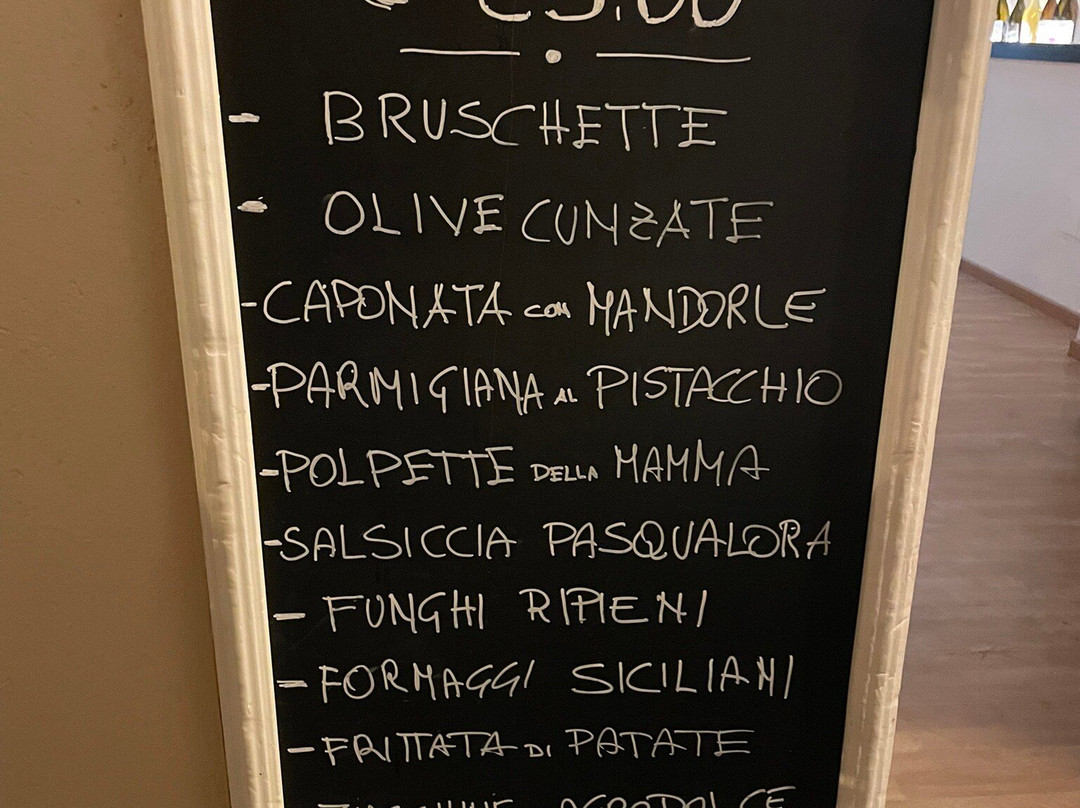 €5.00
- BRUSCHETTE
- OLIVE CUNZATE
- CAPONATA CON MANDORLE
- PARMIGIANA AL PISTACCHIO
- POLPETTE DELLA MAMMA
- SALSICCIA PASQUALORA
- FUNGHI RIPIENI
- FORMAGGI SICILIANI
- FRITTATA DI PATATE
AGRODOLCE